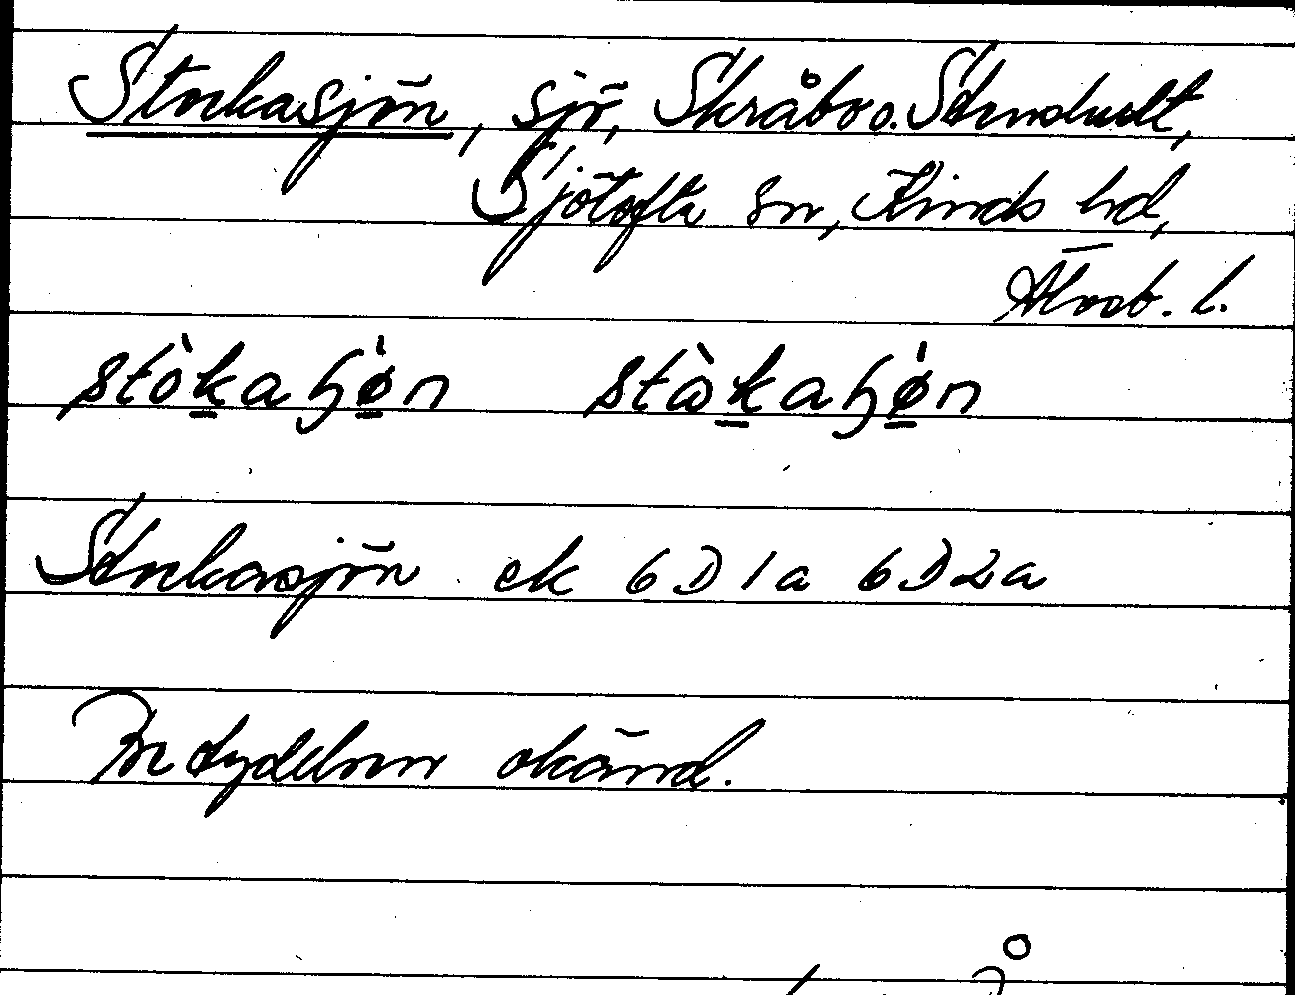 Stockasjön, sjö, Skråbo o. Stendhult,
Sjötofta sn, Kinds hd,
Älvsb. l.
stò̱kaɧø̱n stὼ̱kaɧø̱n
Stockasjön ek 6D1a 6D2a
Betydelsen okänd.